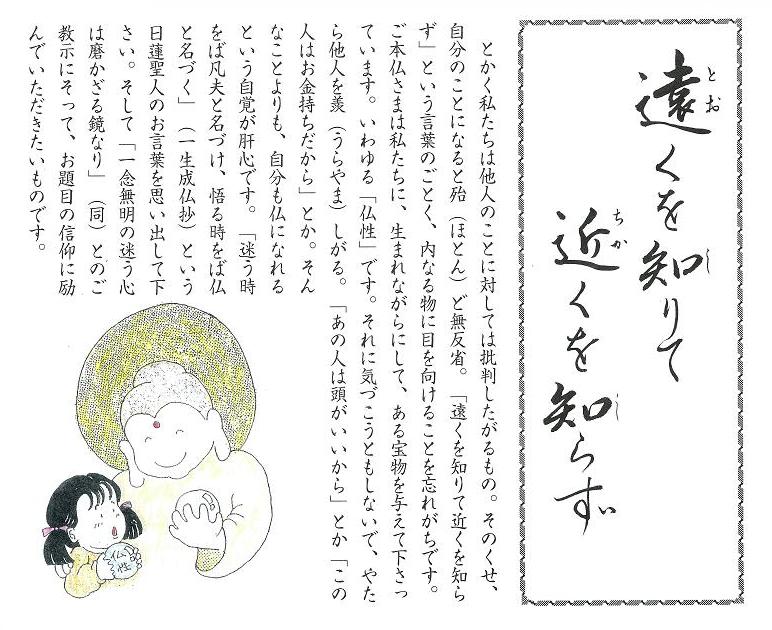 遠くを知りて
近くを知らず
とかく私たちは他人のことに対しては批判したがるもの。そのくせ、
自分のことになると殆（ほとん）ど無反省。「遠くを知りて近くを知ら
ず」という言葉のごとく、内なる物に目を向けることを忘れがちです。
ご本仏さまは私たちに、生まれながらにして、ある宝物を与えて下さっ
ています。いわゆる「仏性」です。それに気づこうともしないで、やた
ら他人を羨（うらやま）しがる。「あの人は頭がいいから」とか「この
人はお金持ちだから」とか。そん
なことよりも、自分も仏になれる
という自覚が肝心です。「迷う時
をば凡夫と名づけ、悟る時をば仏
と名づく」（一生成仏抄）という
日蓮聖人のお言葉を思い出して下
さい。そして「一念無明の迷う心
は磨かざる鏡なり」（同）とのご
教示にそって、お題目の信仰に励
んでいただきたいものです。
仏性